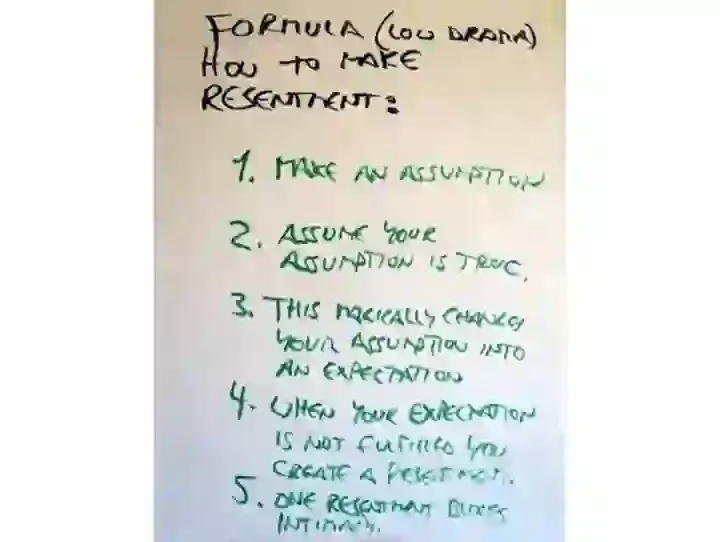 FORMULA (LOW DRAMA)
HOW TO MAKE
RESENTMENT:
1. MAKE AN ASSUMPTION
2. ASSUME YOUR
ASSUMPTION IS TRUE.
3. THIS MAGICALLY CHANGES
YOUR ASSUMPTION INTO
AN EXPECTATION
4. WHEN YOUR EXPECTATION
IS NOT FULFILLED YOU
CREATE A RESENTMENT.
5. ONE RESENTMENT BLOCKS
INTIMACY.